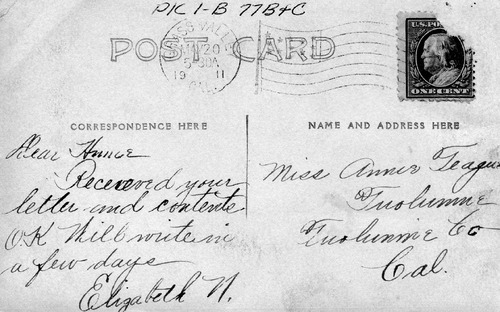 PK 1-B 77B+C
POST CARD
GRASS VALLEY
20
5 30A
19 11
CAL.
U.S. POSTAGE
ONE CENT
CORRESPONDENCE HERE
Dear
Receeved your
letter and contents
O.K Will write in
a few days
Elizabeth N.
NAME AND ADDRESS HERE
Miss Annie Teague
Tuolumne
Tuolumne Co
Cal.